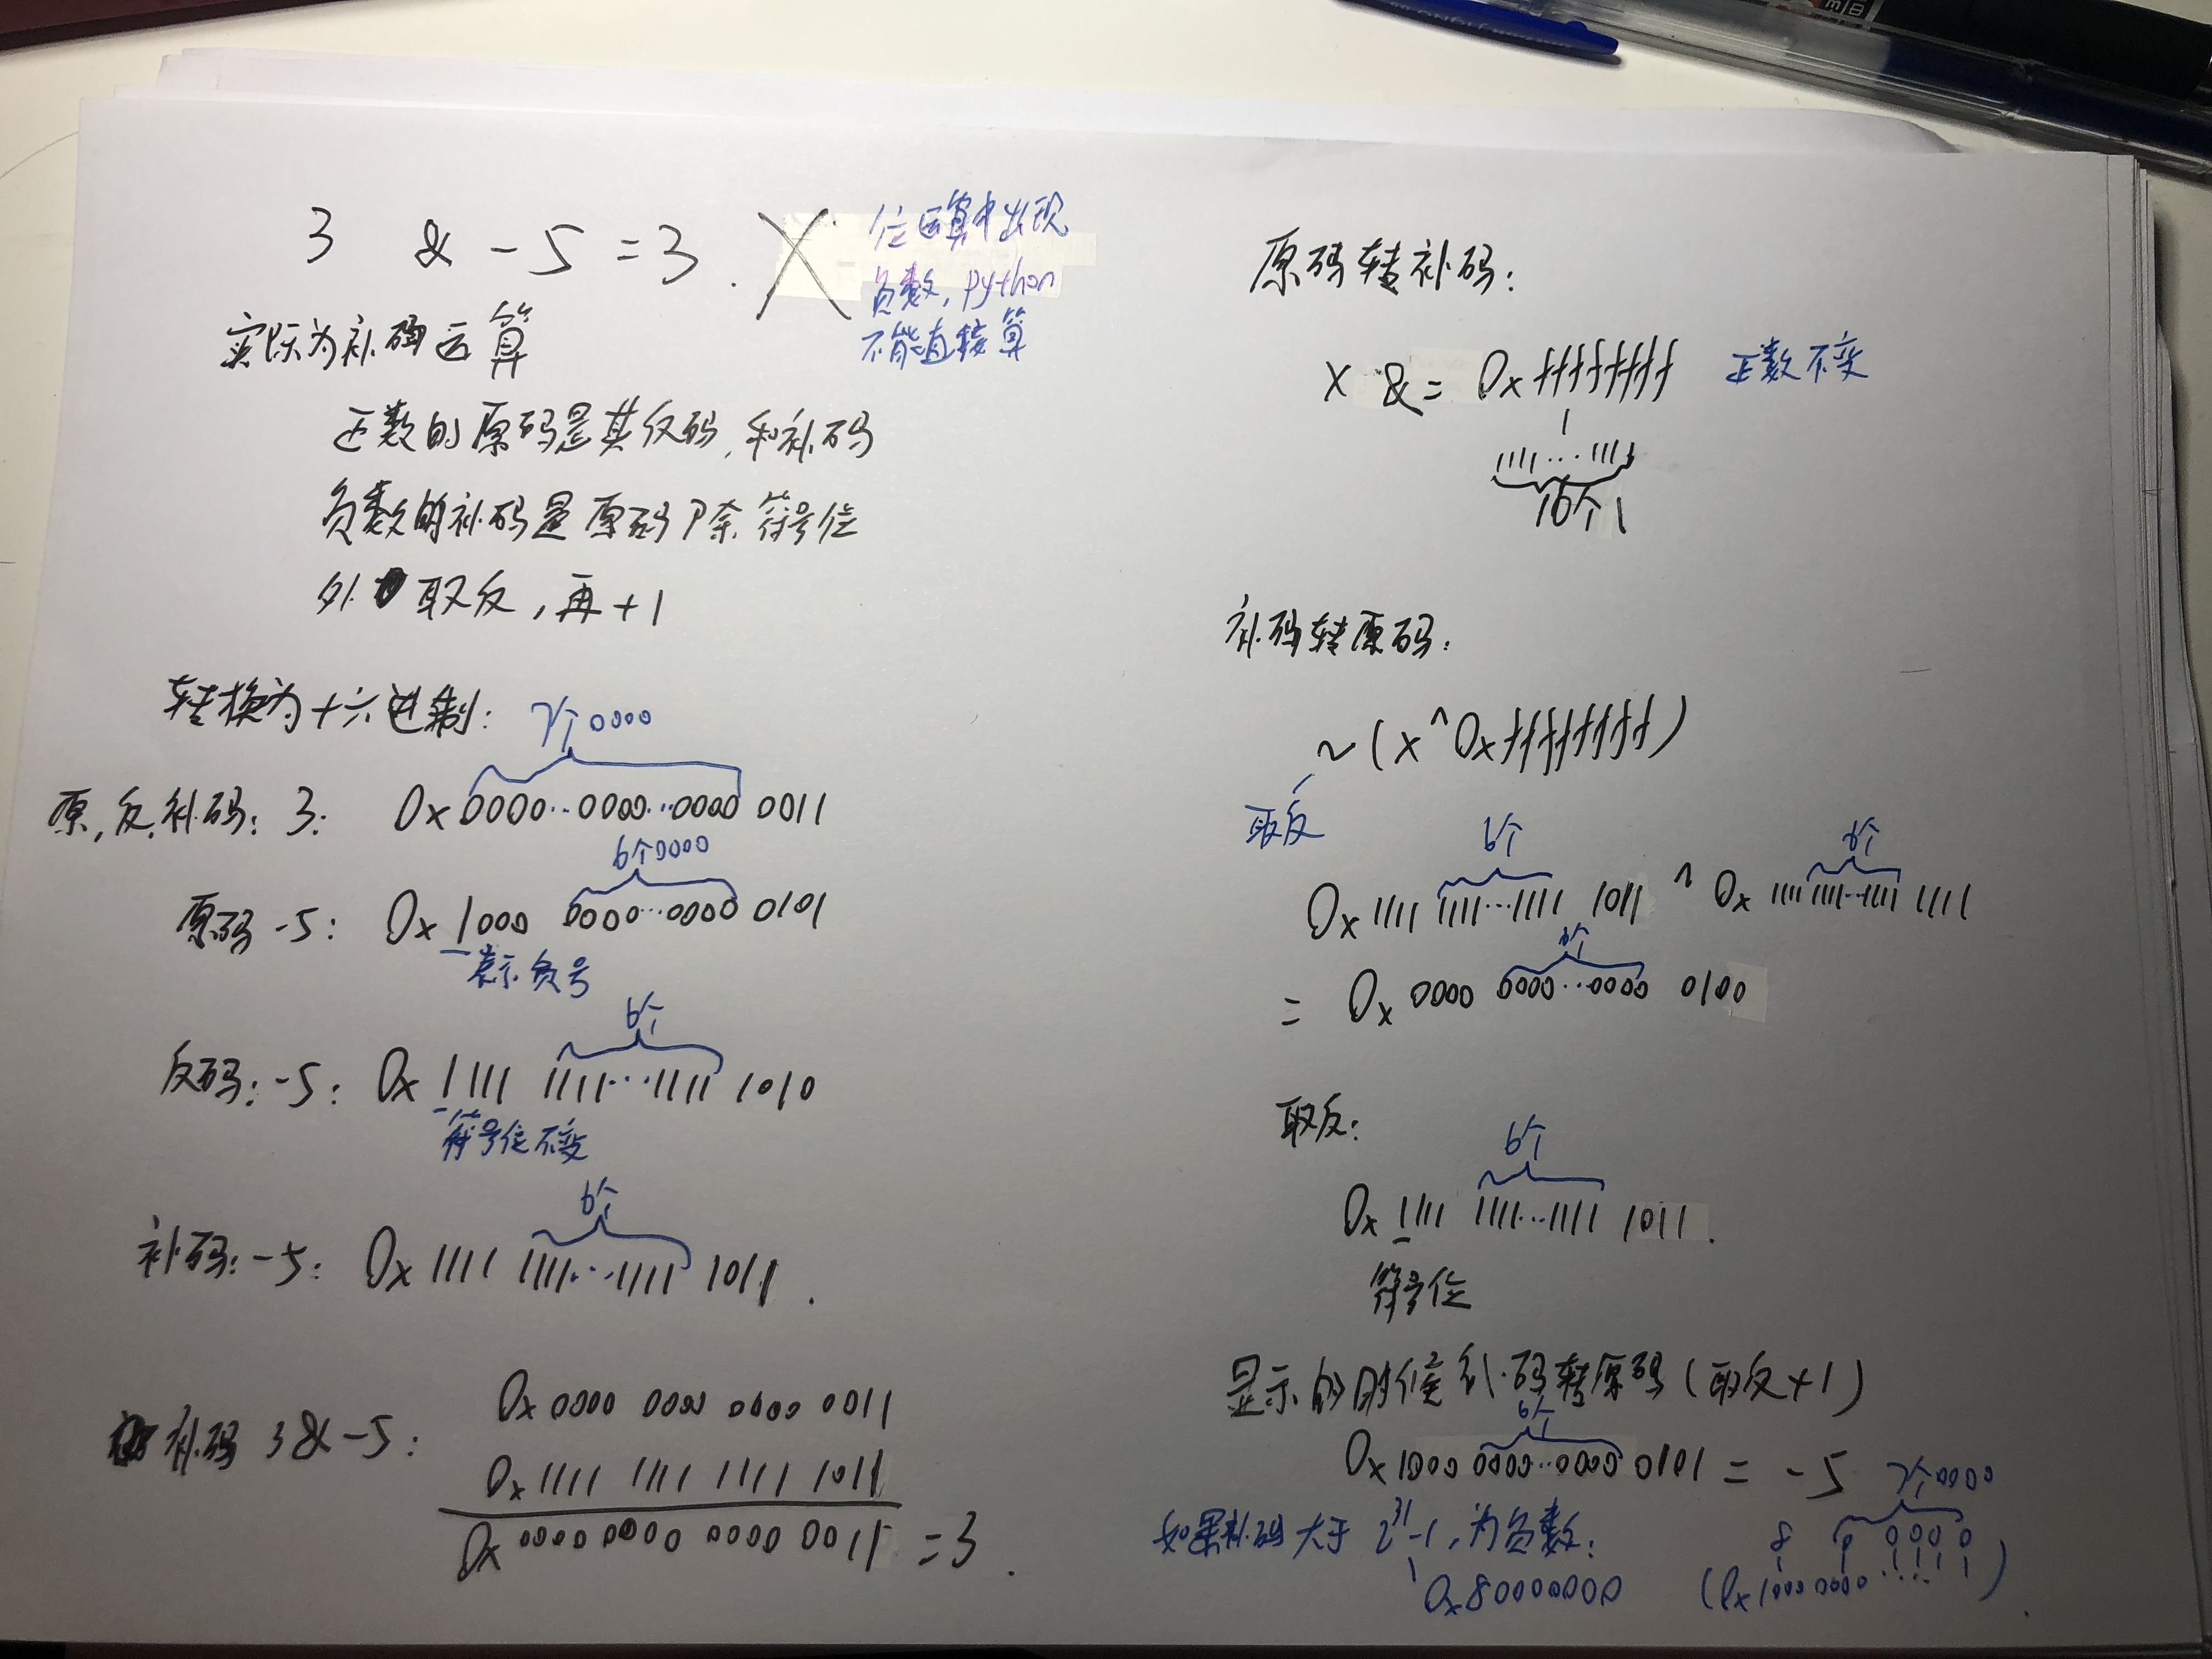 3 & -5 = 3. X
位运算中出现
负数, python
不能直接算
实际为补码运算
正数的原码是其反码,和补码
负数的补码是原码除符号位
外取反,再+1
转换为十六进制:
7个0000
原,反,补码: 3: 0x 0000...0000...0000 0011
6个0000
原码 -5: 0x 1000 0000...0000 0101
表示负号
6个
反码: -5: 0x 1111 1111...1111 1010
符号位不变
6个
补码: -5: 0x 1111 1111...1111 1011.
补码 3 & -5: 0x 0000 0000 0000 0011
0x 1111 1111 1111 1011
0x 0000 0000 0000 0011 = 3.
原码转补码:
x &= 0xffffffff 正数不变
1111...1111
16个1
补码转原码:
~(x^0xffffffff)
取反
6个 6个
0x 1111 1111...1111 1011 ^ 0x 1111 1111...1111 1111
6个
= 0x 0000 0000...0000 0100
取反:
6个
0x 1111 1111...1111 1011.
符号位
显示的时候补码转原码(取反+1)
6个
0x 1000 0000...0000 0101 = -5
如果补码大于 2^31-1,为负数:
0x80000000
7个0000
8 0 0 0 0 0
(0x 1000 0000 ....).